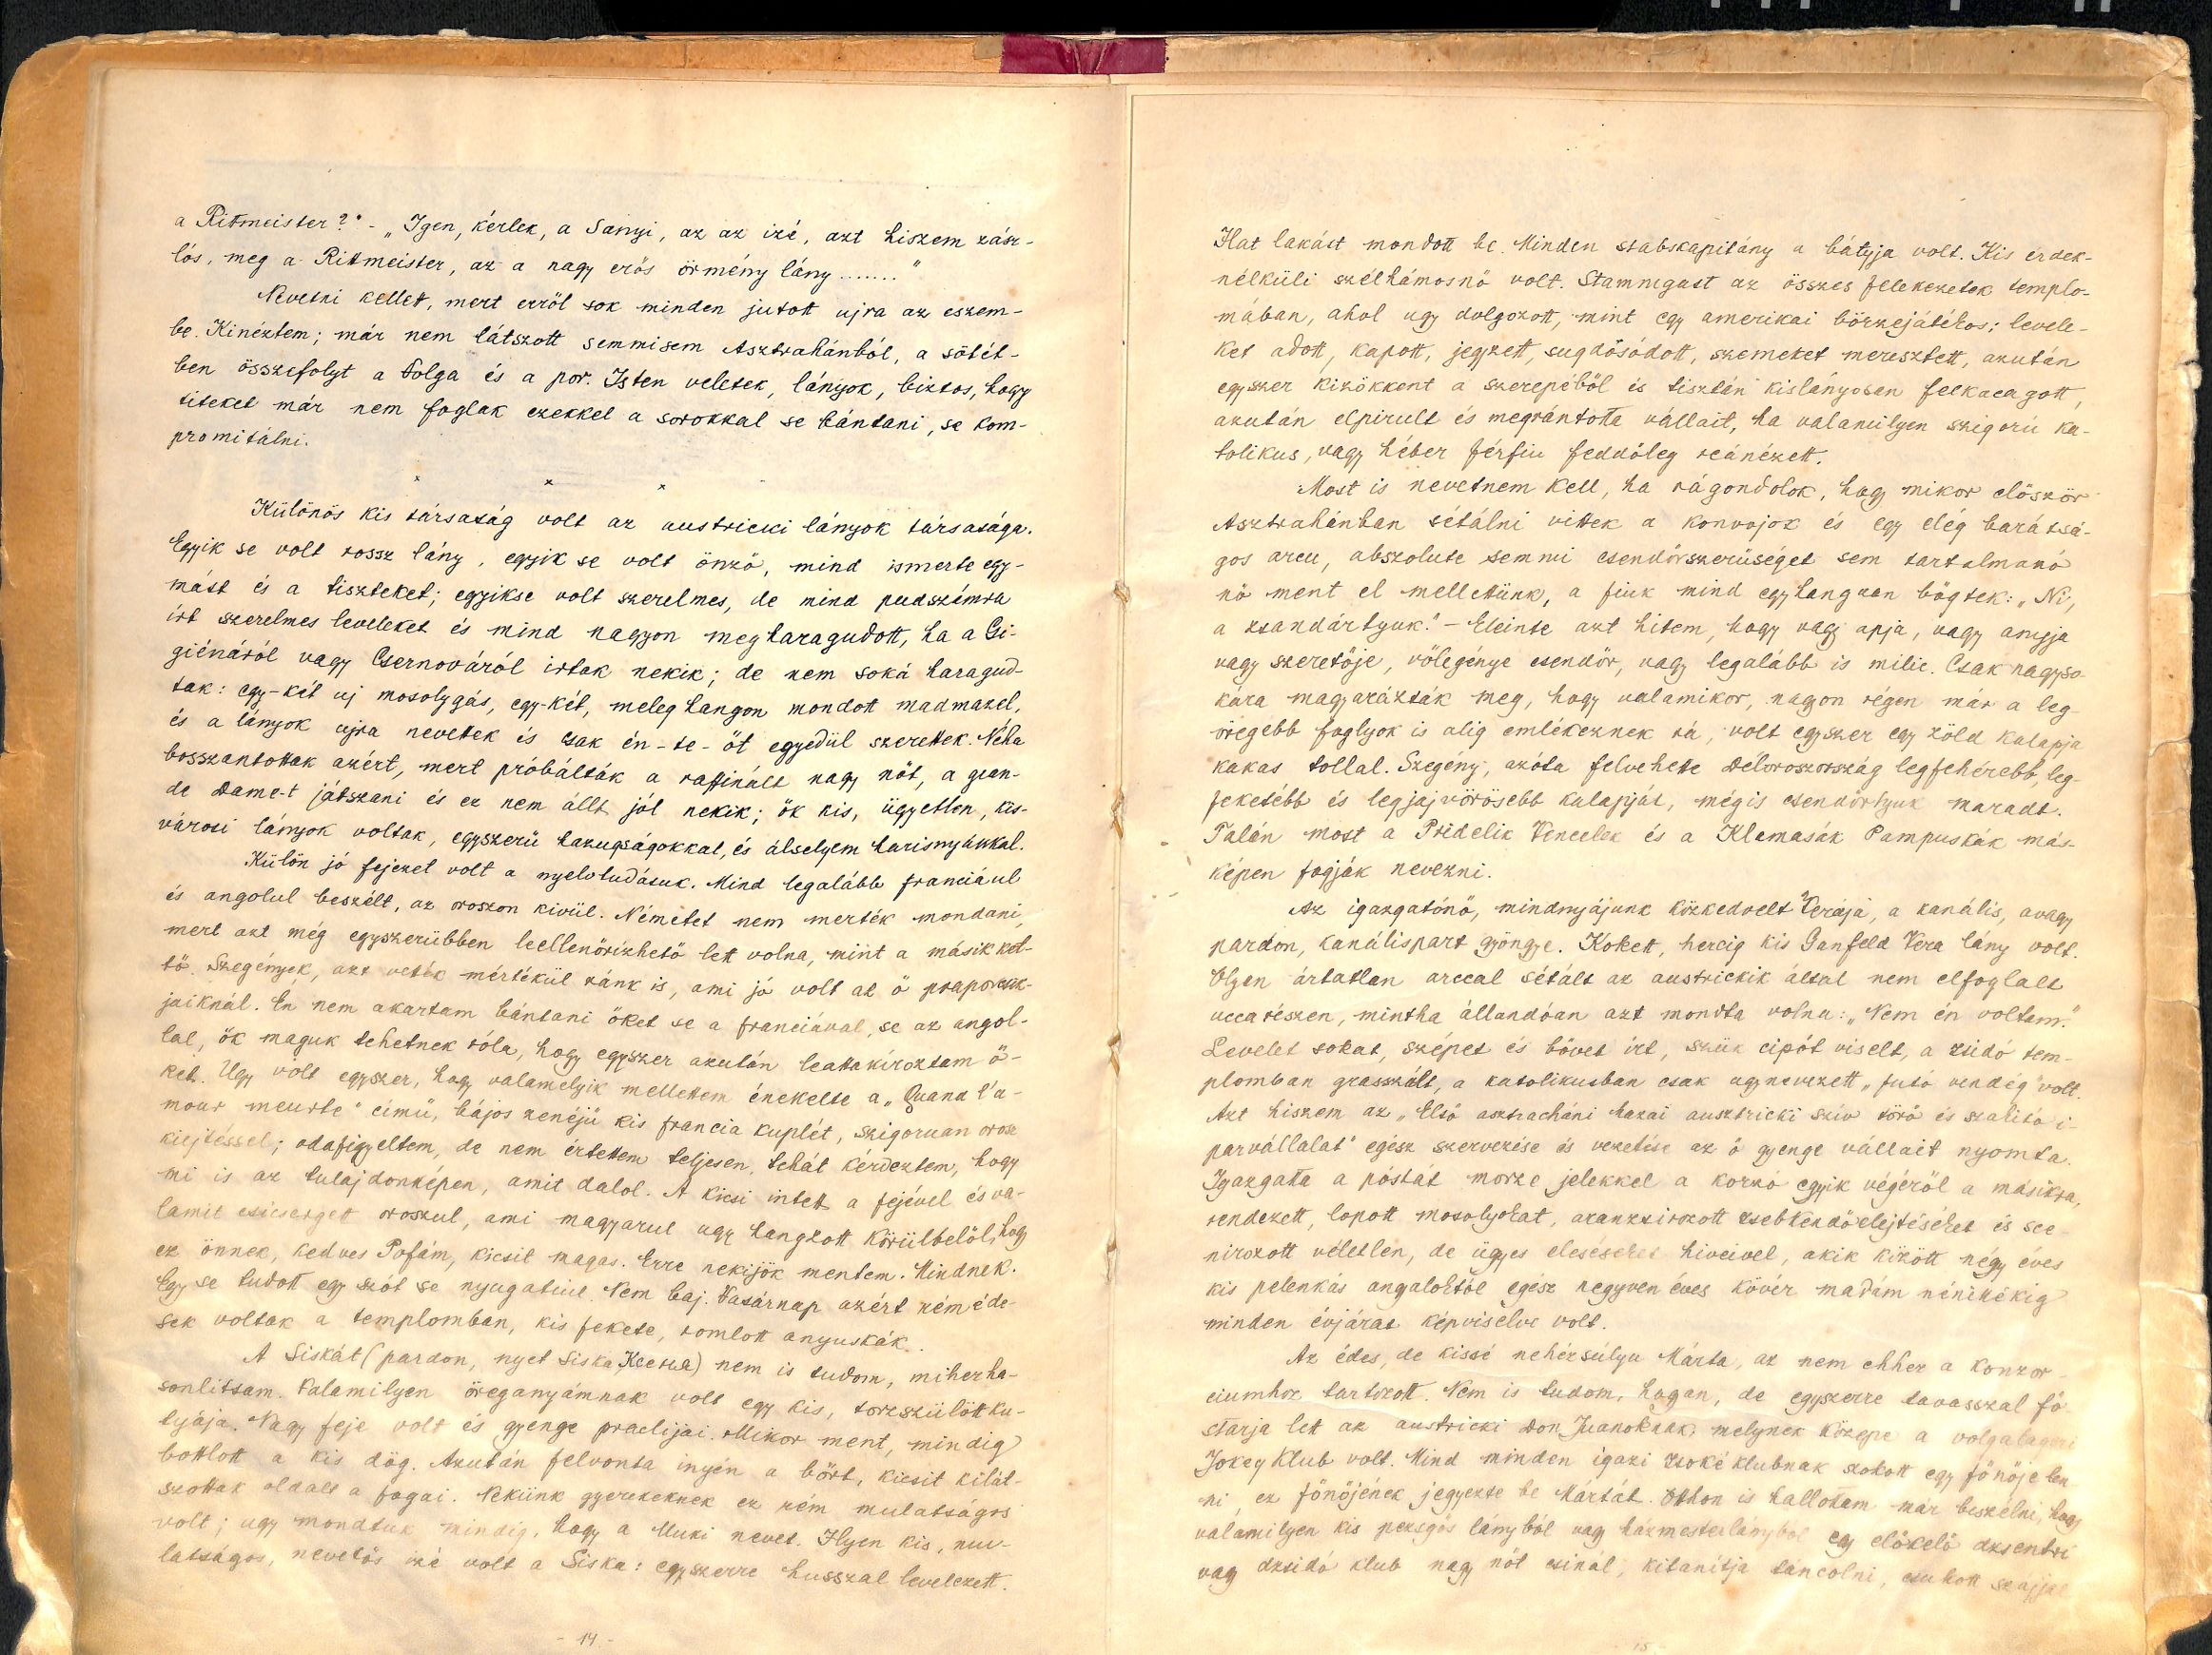 a Ritmeister?" - „Igen, kérlek, a Sanyi, az az izé, azt hiszem zász-
lós, meg a Rittmeister, az a nagy erős örmény lány ......."
Nevetni kellett, mert erről sok minden jutott ujra az eszem-
be. Kinéztem; már nem látszott semmisem Asztrahánból, a sötét-
ben összefolyt a Volga és a por. Isten veletek, lányok, biztos, hogy
titeket már nem foglak ezekkel a sorokkal se bántani, se kom-
promitálni.
x x x
Különös kis társaság volt az austricki lányok társasága.
Egyik se volt rossz lány, egyik se volt önző, mind ismerte egy-
mást és a tiszteket; egyikse volt szerelmes, de mind pudszámra
irt szerelmes leveleket és mind nagyon megharagudott, ha a Gi-
giénáról vagy Csernováról irtak nekik; de nem soká haragud-
tak: egy-két uj mosolygás, egy-két, meleg hangon mondott madmazel,
és a lányok ujra nevettek és csak én-te-őt egyedül szerettek. Néha
bosszantottak azért, mert próbálták a raffinált nagy nőt, a gran-
de Dame-t játszani és ez nem állt jól nekik; ők kis, ügyetlen, kis-
városi lányok voltak, egyszerü hazugságokkal, és álselyem harisnyákkal.
Külön jó fejezet volt a nyelvtudásuk. Mind legalább franciául
és angolul beszélt, az oroszon kivül. Németet nem merték mondani,
mert azt még egyszerübben leellenőrizhető lett volna, mint a másik ket-
tő. Szegények, azt vették mértékül ránk is, ami jó volt az ő praporcsik-
jaiknál. Én nem akartam bántani őket se a franciával, se az angol-
lal, ők maguk tehetnek róla, hogy egyszer azután leattakíroztam ő-
ket. Ugy volt egyszer, hogy valamelyik mellettem énekelte a „Quand l'a-
mour meurte" cimü, bájos zenéjü kis francia kuplét, szigoruan orosz
kiejtéssel; odafigyeltem, de nem értettem teljesen, tehát kérdeztem, hogy
mi is az tulajdonképen, amit dalol. A kicsi intett a fejével és va-
lamit csicsergett oroszul, ami magyarul ugy hangzott körülbelöl, hogy
ez önnek, kedves Pofám, kicsit magas. Erre nekijök mentem. Mindnek.
Egy se tudott egy szót se nyugatiul. Nem baj. Vasárnap azért rém éde-
sek voltak a templomban, kis fekete, romlott anyuskák.
A Siskát (pardon, nyet Siska, Ксения) nem is tudom, mihez ha-
sonlitsam. Valamilyen öreganyámnak volt egy kis, torzszülött ku-
tyája. Nagy feje volt és gyenge praclijai. Mikor ment, mindig
bottlott a kis dög. Azután felvonta inyén a bőrt, kicsit kilát-
szottak oldalt a fogai. Nekünk gyerekeknek ez rém mulatságos
volt; ugy mondtuk mindig, hogy a Muki nevet. Ilyen kis, mu-
latságos, nevetős izé volt a Siska: egyszerre husszal levelezett.
- 14 -
Hat lakást mondott be. Minden stabskapitány a bátyja volt. Kis érdek-
nélküli szélhámosnő volt. Stammgast az összes felekezetek templo-
mában, ahol ugy dolgozott, mint egy amerikai börzejátékos: levele-
ket adott, kapott, jegyzett, sugdosódott, szemeket meresztett, azután
egyszer kizökkent a szerepéből és tisztán kislányosan felkacagott,
azután elpirult és megrántotta vállait, ha valamilyen szigorú ka-
tolikus, vagy héber férfiu feddőleg reánézett.
Most is nevetnem kell, ha rágondolok, hogy mikor először
Asztrahánban sétálni vittek a konvojok és egy elég barátsá-
gos arcu, abszolute semmi csendőrszerüséget sem tartalmazó
nő ment el mellettünk, a fiuk mind egyhangzan bögtek: „Ni,
a zsandártyuk." - Eleinte azt hitem, hogy vagy apja, vagy anyja
vagy szeretője, vőlegénye csendőr, vagy legalább is milic. Csak nagyso-
kára magyarázták meg, hogy valamikor, nagyon régen már a leg-
öregebb foglyok is alig emlékeznek rá, volt egyszer egy zöld kalapja
kakas tollal. Szegény, azóta felvehette Déloroszország legfehérebb, leg-
feketébb és legjajvörösebb kalapját, mégis csendőrtyuk maradt.
Talán most a Pridelik Vencelek és a Klamasák Pampuskák más-
képen fogják nevezni.
Az igazgatónő, mindnyájunk közkedvelt Verája, a kanális, avagy
pardon, kanálispart gyöngye. Kokett, hercig kis Ganfeld Vera lány volt.
Olyan ártatlan arccal sétált az austrickik által nem elfoglalt
uccarészen, mintha állandóan azt mondta volna: „Nem én voltam."
Levelet sokat, szépet és bővet irt, szük cipőt viselt, a zsidó tem-
plomban grasszált, a katolikusban csak ugynevezett „futó vendég" volt.
Azt hiszem az „Első asztracháni hazai ausztricki sziv törő és szalitó i-
parvállalat" egész szervezése és vezetése az ő gyenge vállait nyomta.
Igazgatta a póstát morze jelekkel a korzó egyik végéről a másikra,
rendezett, lopott mosolyokat, aranzsirozott zsebkendőelejtéséket és sce-
nirozott véletlen, de ügyes eleséseket hiveivel, akik között négy éves
kis pelenkás angaloktól egész negyven éves kövér madám nénikékig
minden évjárat képviselve volt.
Az édes, de kissé nehézsúlyu Márta, az nem ehhez a konzor-
ciumhoz tartozott. Nem is tudom, hogan, de egyszerre tavasszal fő
sztárja lett az austricki Don Juanoknak, melynek közepe a volgatageri
Jokey Klub volt. Mind minden igazi zsoké klubnak szokott egy főnöje len-
ni, ez főnöjének jegyezte be Mártát. Otthon is hallottam már beszélni, hogy
valamilyen kis pezsgős lányból vagy házmesterlányból egy előkelő dzsentri
vagy dzsidó klub nagy nőt csinál, kitanítja táncolni, csukott szájjal
- 15 -